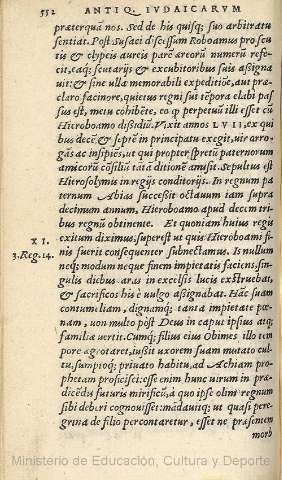 552 ANTIQ. IVDAICARVM
præterquã nos. Sed de his quisq; suo arbitratu
sentiat. Post Susaci discessum Roboamus pro scu
tis & clypeis aureis pare æreorũ numerũ refe-
cit, eaq; scutarijs & excubitoribus suis assigna
uit: & sine ulla memorabili expeditiõe, aut præ
claro facinore, quietus regni sui tẽpora elabi pas
sus est, metu cohibẽte, eo ꝙ perpetuũ illi esset cũ
Hieroboamo dissidiũ. Vixit annos LVII, ex qui
bus decẽ & septẽ in principatu exegit, uir arro-
gãs ac insipiẽs, ut qui propter spretũ paternorum
amicorũ cõsiliũ tãtã ditionẽ amisit. Sepultus est
Hierosolymis in regijs conditorijs. In regnum pa
ternum Abias successit octauum iam supra
decimum annum, Hieroboamo apud decem tri
bus regnũ obtinente. Et quoniam huius regis
XI. exitum diximus, superest ut quis Hieroboami fi-
3.Reg.14. nis fuerit consequenter subnectamus. Is nullum
neq; modum neque finem impietatis faciens, sin-
gulis diebus aras in excelsis lucis exstruebat,
& sacrificos his è uulgo assignabat. Hãc suam
contumeliam, dignamq; tanta impietate pœ-
nam, non multo pòst Deus in caput ipsius atq;
familiæ uertit. Cumq; filius eius Obimes illo tem
pore ægrotaret, iussit uxorem suam mutato cul-
tu, sumptoq; priuato habitu, ad Achiam pro-
phetam proficisci: esse enim hunc uirum in præ-
dicẽdis futuris mirificũ, à quo ipse olim regnum
sibi deberi cognouisset: mãdauitq; ut quasi pere-
grina de filio percontaretur, esset ne præsentem
morb
Ministerio de Educación, Cultura y Deporte